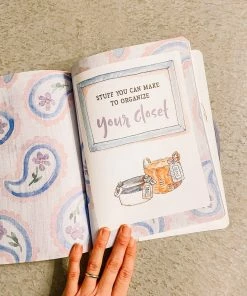 STUFF YOU CAN MAKE
TO ORGANIZE
your closet